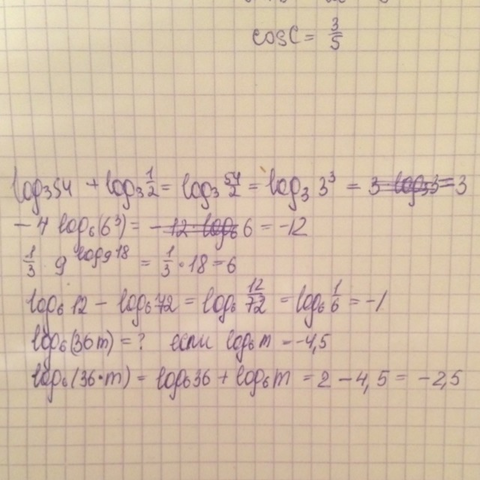 cosC = 3/5
log₃54 + log₃ 1/2 = log₃ 54/2 = log₃ 3³ = 3 log₃3 = 3
- 4 log₆(6³) = - 12 log₆ 6 = -12
1/3 · 9^log₉18 = 1/3 · 18 = 6
log₆12 - log₆72 = log₆ 12/72 = log₆ 1/6 = -1
log₆(36m) = ? если log₆m = -4,5
log₆(36·m) = log₆36 + log₆m = 2 - 4,5 = -2,5